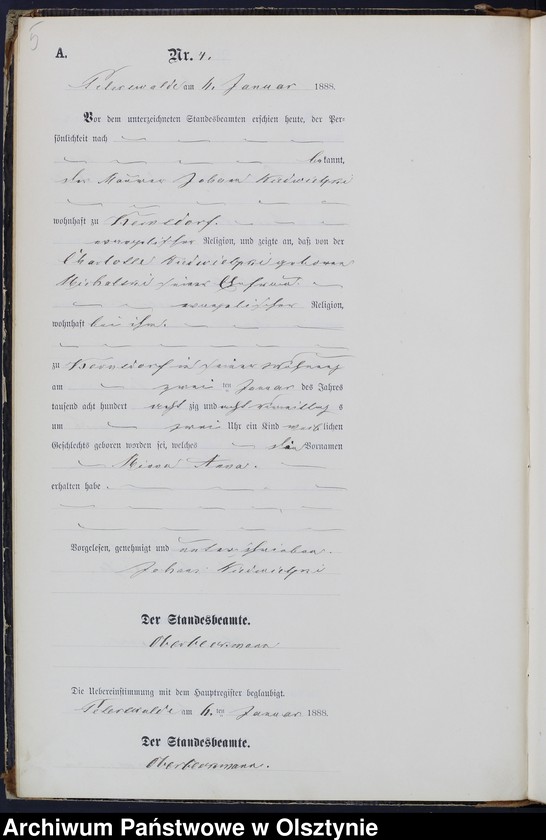 5
A. Nr. 4.
am 4. Januar 1888.
Vor dem unterzeichneten Standesbeamten erschien heute, der Per-
sönlichkeit nach
bekannt,
der Maurer Johann
wohnhaft zu
evangelischer Religion, und zeigte an, daß von der
Charlotte geborenen
Michalski seiner Ehefrau
evangelischer Religion,
wohnhaft bei ihm.
zu in seiner Wohnung
am zwei ten Januar des Jahres
tausend acht hundert acht zig und acht Vormittag s
um zwei Uhr ein Kind weiblichen
Geschlechts geboren worden sei, welches die Vornamen
Anna.
erhalten habe.
Vorgelesen, genehmigt und unterschrieben.
Johann
Der Standesbeamte.
Die Uebereinstimmung mit dem Hauptregister beglaubigt.
am 4. ten Januar 1888.
Der Standesbeamte.
Archiwum Państwowe w Olsztynie